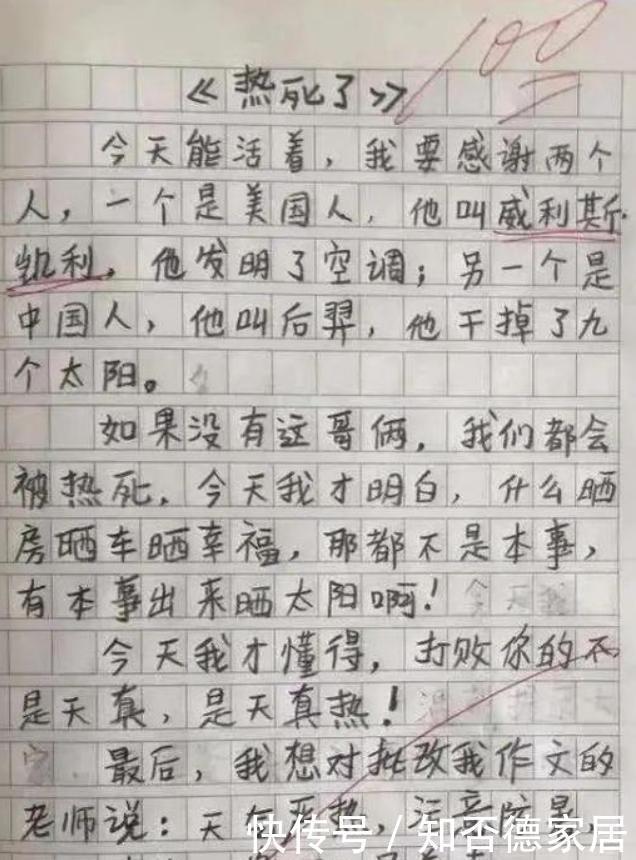 《热死了》 100
今天能活着，我要感谢两个
人，一个是美国人，他叫威利斯·
凯利，他发明了空调；另一个是
中国人，他叫后羿，他干掉了九
个太阳。
如果没有这哥俩，我们都会
被热死，今天我才明白，什么晒
房晒车晒幸福，那都不是本事，
有本事出来晒太阳啊！
今天我才懂得，打败你的不
是天真，是天真热！
最后，我想对批改我作文的
老师说：天气严热，注意防暑，
快传号 / 知否德家居